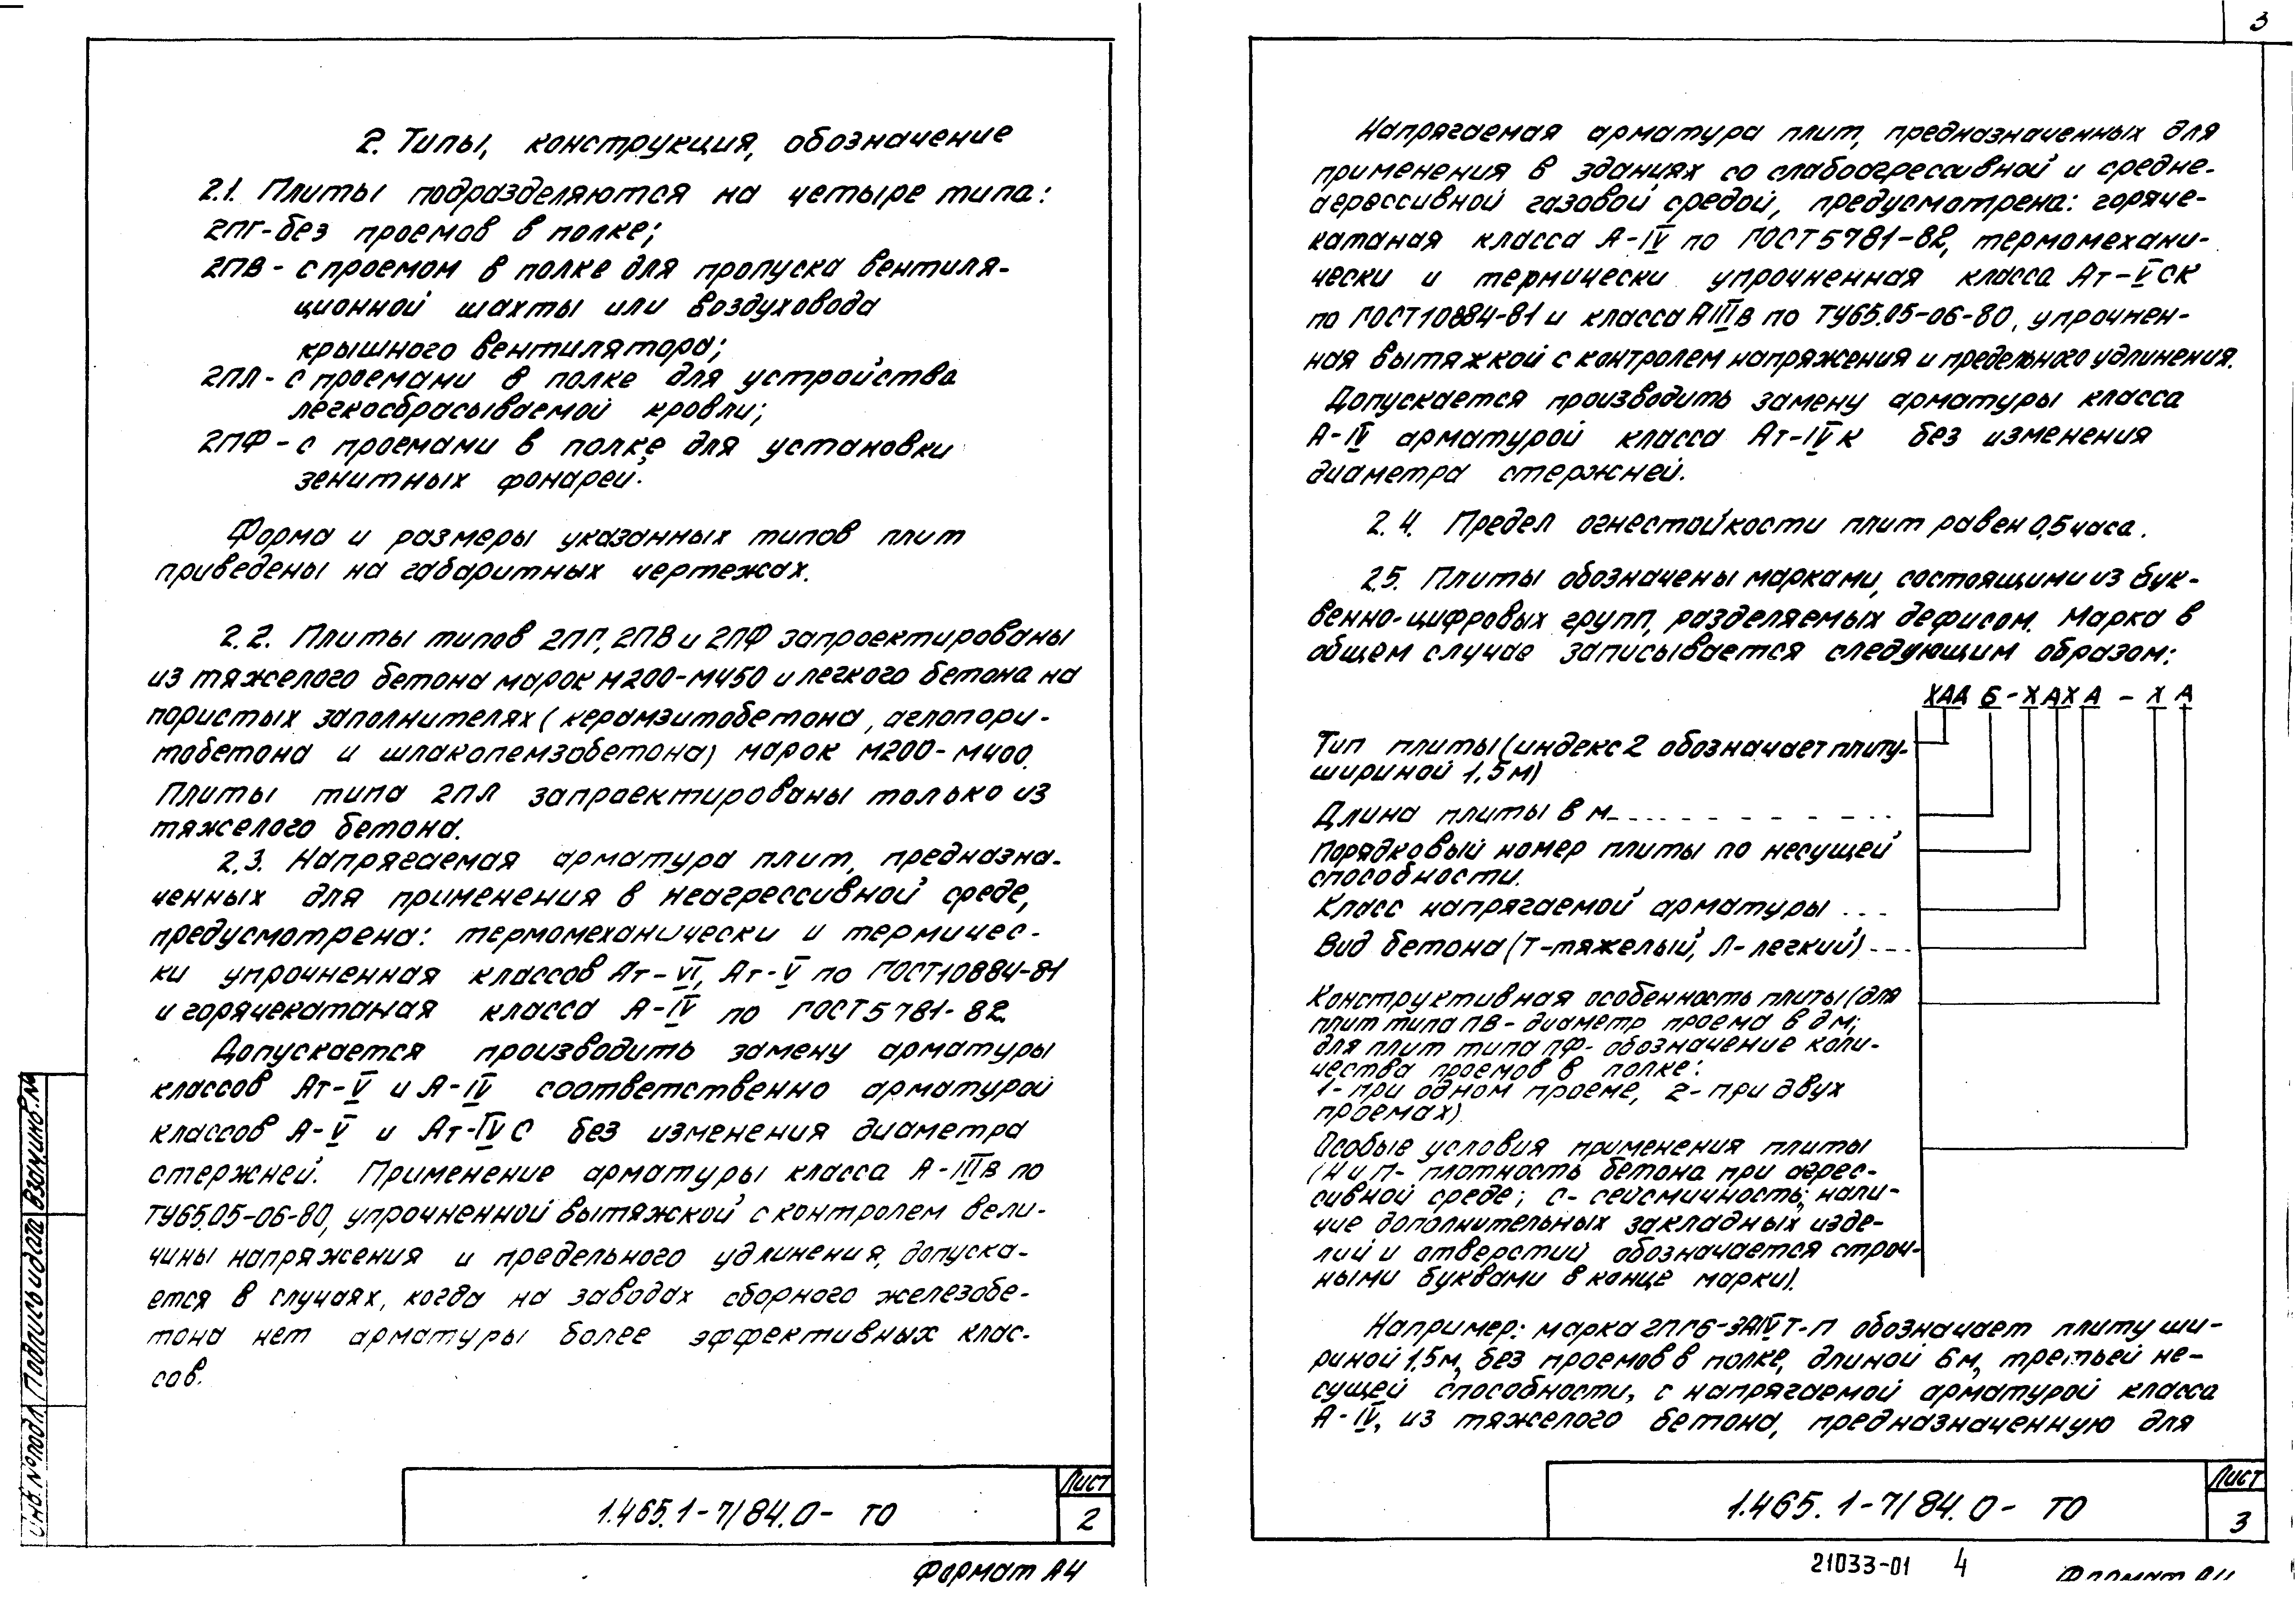 2. Типы, конструкция, обозначение
2.1. Плиты подразделяются на четыре типа:
2ПГ-без проемов в полке;
2ПВ - с проемом в полке для пропуска вентиля-
ционной шахты или воздуховода
крышного вентилятора;
2ПЛ - с проемами в полке для устройства
легкосбрасываемой кровли;
2ПФ - с проемами в полке для установки
зенитных фонарей.
Форма и размеры указанных типов плит
приведены на габаритных чертежах.
2.2. Плиты типов 2ПГ, 2ПВ и 2ПФ запроектированы
из тяжелого бетона марок М200-М450 и легкого бетона на
пористых заполнителях (керамзитобетона, аглопори-
тобетона и шлакопемзобетона) марок М200-М400.
Плиты типа 2ПЛ запроектированы только из
тяжелого бетона.
2.3. Напрягаемая арматура плит, предназна-
ченных для применения в неагрессивной среде,
предусмотрена: термомеханически и термичес-
ки упрочненная классов Ат-VI, Ат-V по ГОСТ10884-81
и горячекатаная класса А-IV по ГОСТ5781-82.
Допускается производить замену арматуры
классов Ат-V и А-IV соответственно арматурой
классов А-V и Ат-IVС без изменения диаметра
стержней. Применение арматуры класса А-IIIв по
ТУ65.05-06-80, упрочненной вытяжкой с контролем вели-
чины напряжения и предельного удлинения, допуска-
ется в случаях, когда на заводах сборного железобе-
тона нет арматуры более эффективных клас-
сов.
Инв.№подл. Подпись и дата Взам.инв.№
1.465.1-7/84.0- ТО
Лист
2
Формат А4
3
Напрягаемая арматура плит, предназначенных для
применения в зданиях со слабоагрессивной и средне-
агрессивной газовой средой, предусмотрена: горяче-
катаная класса А-IV по ГОСТ5781-82, термомехани-
чески и термически упрочненная класса Ат-VСК
по ГОСТ10884-81 и класса АIIIв по ТУ65.05-06-80, упрочнен-
ная вытяжкой с контролем напряжения и предельного удлинения.
Допускается производить замену арматуры класса
А-IV арматурой класса Ат-IVК без изменения
диаметра стержней.
2.4. Предел огнестойкости плит равен 0,5 часа.
2.5. Плиты обозначены марками, состоящими из бук-
венно-цифровых групп, разделяемых дефисом. Марка в
общем случае записывается следующим образом:
ХАА 6-ХАХА - Х А
Тип плиты (индекс 2 обозначает плиту-
шириной 1,5м)
Длина плиты в м
Порядковый номер плиты по несущей
способности.
Класс напрягаемой арматуры ...
Вид бетона (Т-тяжелый, Л-легкий)
Конструктивная особенность плиты (для
плит типа ПВ - диаметр проема в дм;
для плит типа ПФ- обозначение коли-
чества проемов в полке:
1- при одном проеме, 2- при двух
проемах).
Особые условия применения плиты
(Н и П- плотность бетона при агрес-
сивной среде; С- сейсмичность; нали-
чие дополнительных закладных изде-
лий и отверстий обозначается строч-
ными буквами в конце марки).
Например: марка 2ПГ6-3АIVТ-П обозначает плиту ши-
риной 1,5м, без проемов в полке, длиной 6м, третьей не-
сущей способности, с напрягаемой арматурой класса
А-IV, из тяжелого бетона, предназначенную для
1.465.1-7/84.0- ТО
Лист
3
21033-01 4
Формат А4